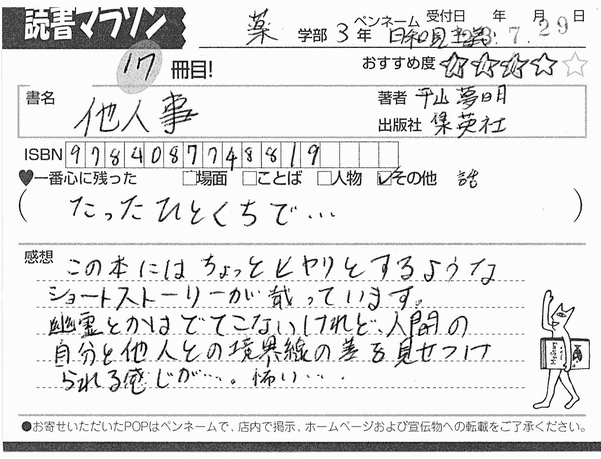 読書マラソン
薬 学部 3年 ペンネーム 日和見主義 受付日 年 月 日
23.7.29
17 冊目!
おすすめ度 ★★★★☆
書名 他人事
著者 平山夢明
出版社 集英社
ISBN 9784087748819
♥一番心に残った □場面 □ことば □人物 ☑その他 話
(たったひとくちで…)
感想
この本にはちょっとヒヤリとするような
ショートストーリーが載っています。
幽霊とかはでてこないけれど、人間の
自分と他人との境界線の差を見せつけ
られる感じが…。怖い…
●お寄せいただいたPOPはペンネームで、店内で掲示、ホームページおよび宣伝物への転載をご了承ください。